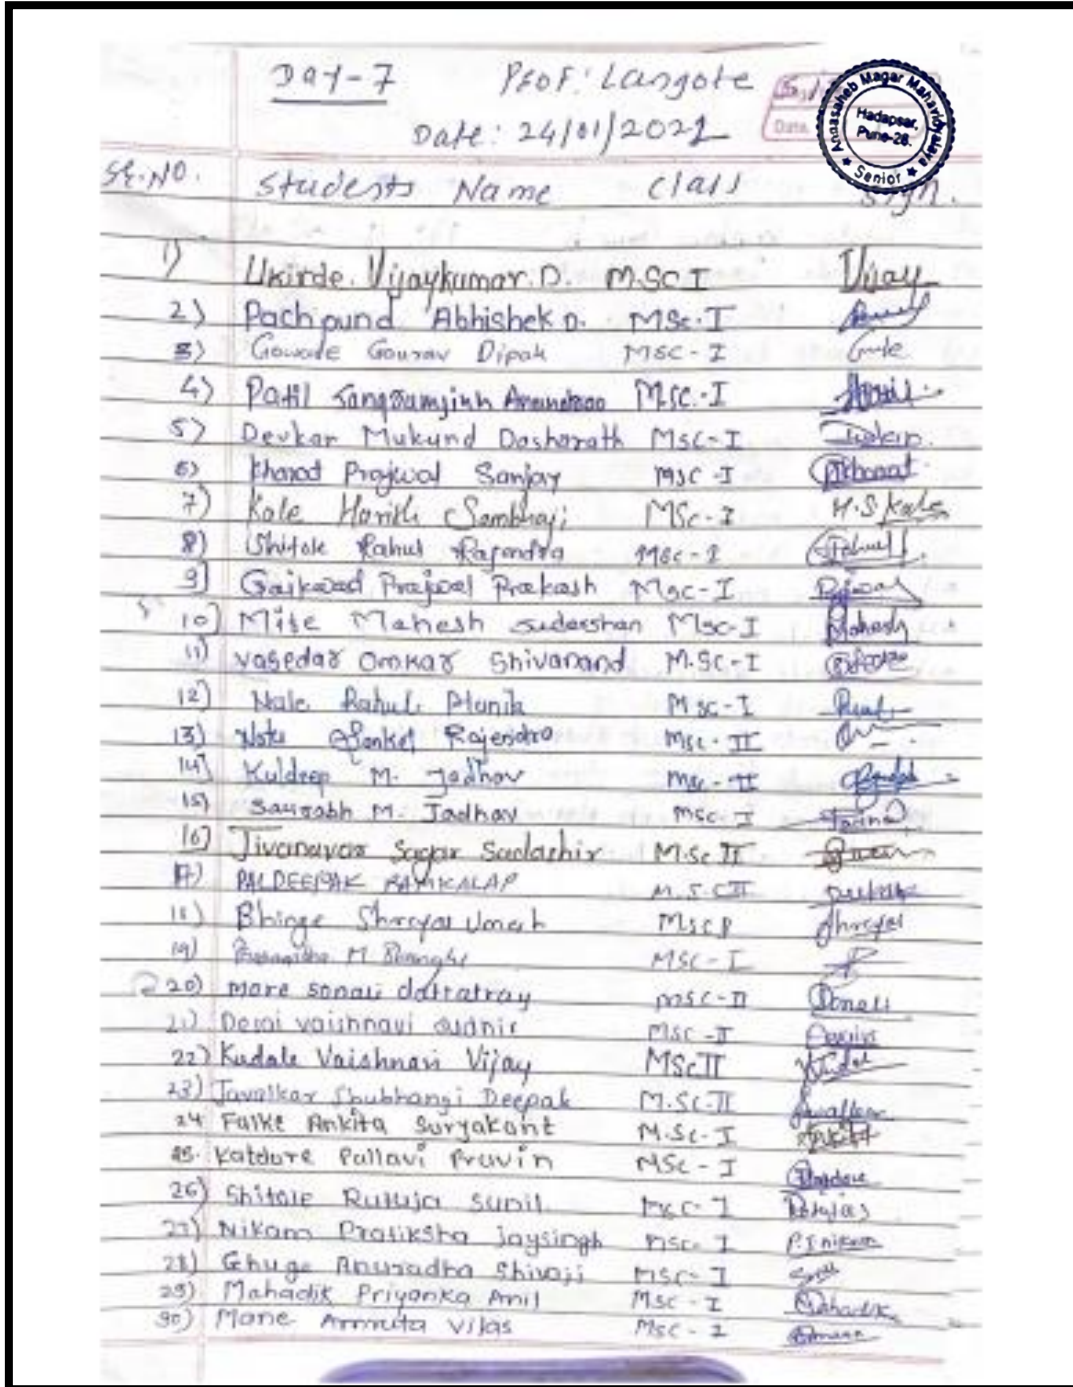 Day-7 Prof: Langote
Date: 24/01/2022
Annasaheb Magar Mahavidyalaya
Hadapsar,
Pune-28.
★ Senior ★
Date
Sr.No. Students Name Class Sign.
1) Ukirde. Vijaykumar. D. M.SC I Vijay
2) Pachpund Abhishek D. MSc-I
3) Gowade Gourav Dipak MSC-I
4) Patil Sangramsinh Anandrao M.SC.-I
5) Devkar Mukund Dasharath MSC-I
6) Kharad Prajwal Sanjay MSC-I
7) Kale Harish Sambhaji MSc-I H.S Kale
8) Shitole Rahul Rajendra MSc-I
9) Gaikwad Prajwal Prakash Msc-I
10) Mise Mahesh sudarshan Msc-I Mahesh
11) vagedar Omkar Shivanand M.Sc-I
12) Nale Rahul Msc-I
13) Sanket Rajendra Msc-II
14) Kuldeep M. Jadhav Msc-II
15) Saurabh M. Jadhav MSC-I
16) Jivanavar Sagar Sadashiv M.Sc II
17) PAL DEEPAK RAMKALAP M.SC II
18) Bhinge Shreyas Umesh MSc II Shreyas
19) M MSC-I
20) more sonali dattatray MSC-II Sonali
21) Desai vaishnavi sudhir MSC-II
22) Kudale Vaishnavi Vijay MSc II
23) Javalkar Shubhangi Deepak M.SC.II Javalkar
24 Falke Ankita Suryakant M.Sc-I
25. Katdore Pallavi Pravin MSc-I
26) Shitole Rutuja Sunil MSC-I
27) Nikam Pratiksha Jaysingh MSC-I P.J nikam
28) Ghuge Anuradha Shivaji MSC-I
29) Mahadik Priyanka Anil MSC-I Mahadik
30) Mane Amruta Vilas MSC-I